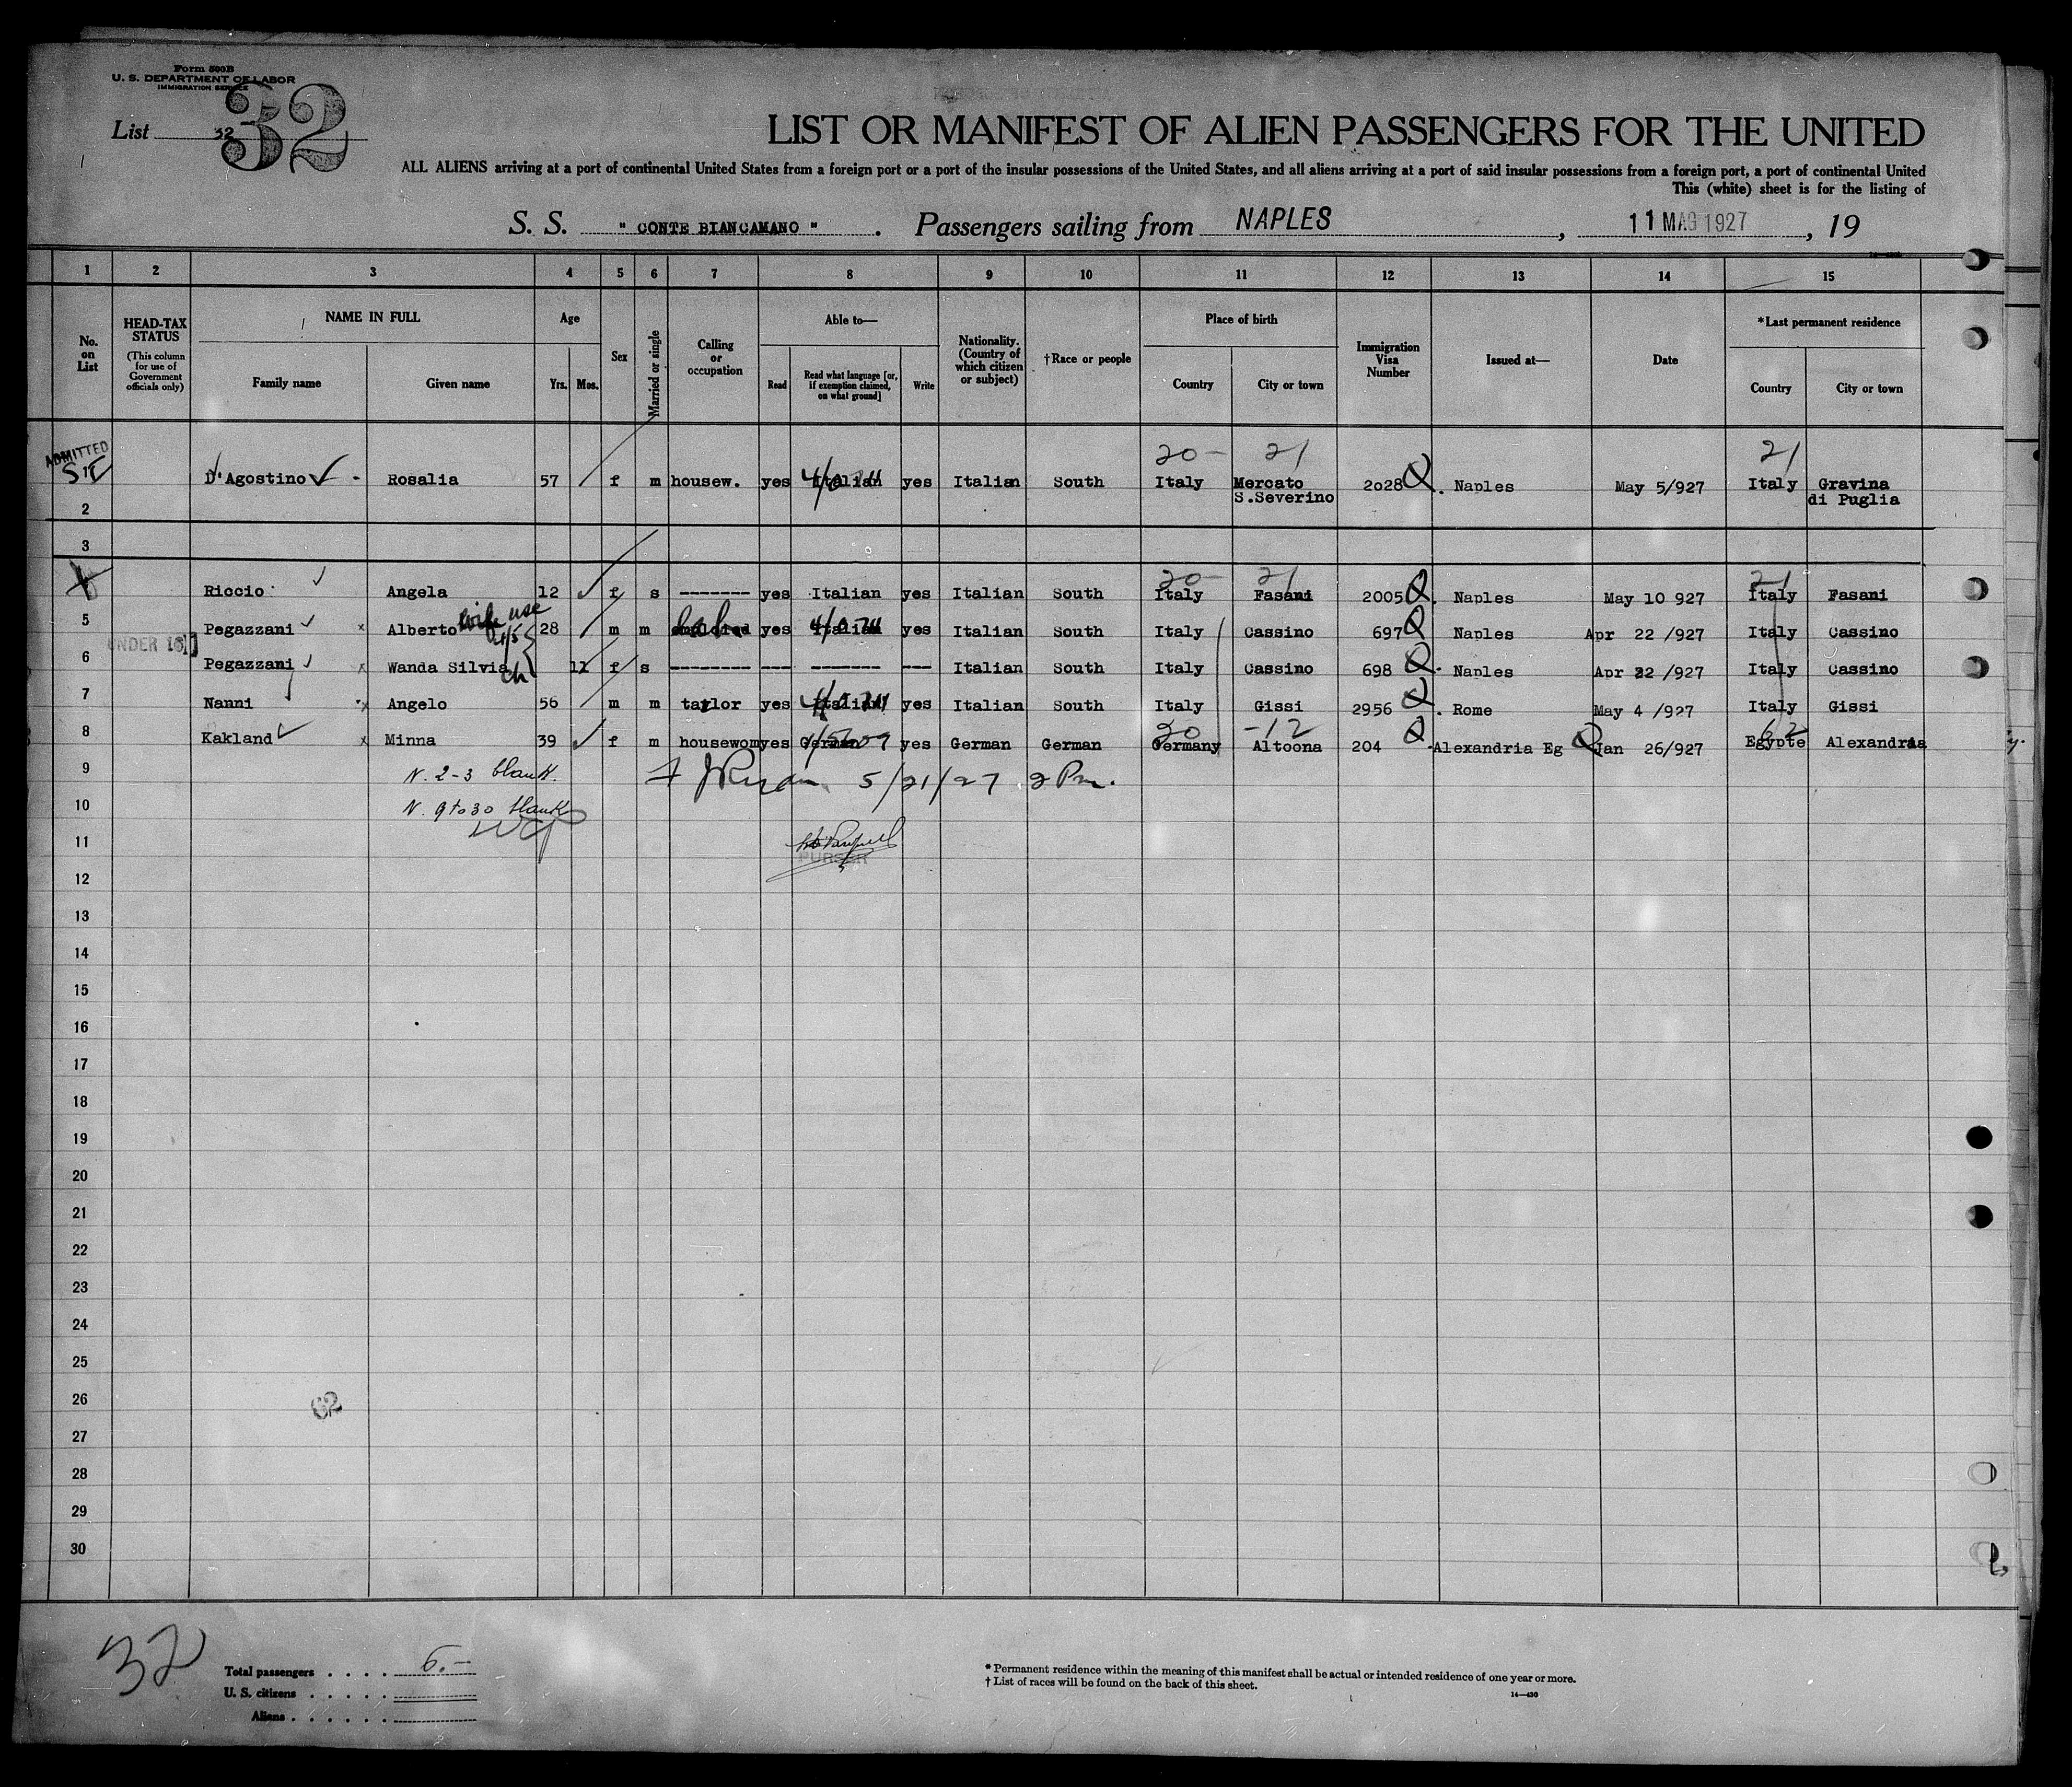 Form 500B
U. S. DEPARTMENT OF LABOR
IMMIGRATION SERVICE
32
List 32
LIST OR MANIFEST OF ALIEN PASSENGERS FOR THE UNITED
ALL ALIENS arriving at a port of continental United States from a foreign port or a port of the insular possessions of the United States, and all aliens arriving at a port of said insular possessions from a foreign port, a port of continental United
This (white) sheet is for the listing of
S. S. " CONTE BIANCAMANO " . Passengers sailing from NAPLES , 11 MAG 1927 , 19
1 2 3 4 5 6 7 8 9 10 11 12 13 14 15
No. on List
HEAD-TAX STATUS (This column for use of Government officials only)
NAME IN FULL Family name Given name
Age Yrs. Mos.
Sex
Married or single
Calling or occupation
Able to— Read Read what language [or, if exemption claimed, on what ground] Write
Nationality. (Country of which citizen or subject)
†Race or people
Place of birth Country City or town
Immigration Visa Number
Issued at—
Date
*Last permanent residence Country City or town
ADMITTED
20- 21 21
D'Agostino Rosalia 57 f m housew. yes Italian yes Italian South Italy Mercato S.Severino 2028 Naples May 5/927 Italy Gravina di Puglia
2
3
20- 21 21
Riccio Angela 12 f s -------- yes Italian yes Italian South Italy Fasani 2005 Naples May 10 927 Italy Fasani
5 Pegazzani Alberto 28 m m yes Italian yes Italian South Italy Cassino 697 Naples Apr 22 /927 Italy Cassino
UNDER 16
6 Pegazzani Wanda Silvia ch 11 f s -------- --- ------- --- Italian South Italy Cassino 698 Naples Apr 22 /927 Italy Cassino
7 Nanni Angelo 56 m m taylor yes Italian yes Italian South Italy Gissi 2956 . Rome May 4 /927 Italy Gissi
20 -12
8 Kakland Minna 39 f m housewom yes German yes German German Germany Altoona 204 Alexandria Eg Jan 26/927 Egypte Alexandria
9 N. 2-3 blank. 5/21/27 2 Pm.
10 N. 9 to 30 blank
11
PURSER
12
13
14
15
16
17
18
19
20
21
22
23
24
25
26
62
27
28
29
30
32
Total passengers . . . . 6.-
U. S. citizens . . . . .
Aliens . . . . . .
* Permanent residence within the meaning of this manifest shall be actual or intended residence of one year or more.
† List of races will be found on the back of this sheet.
14—430